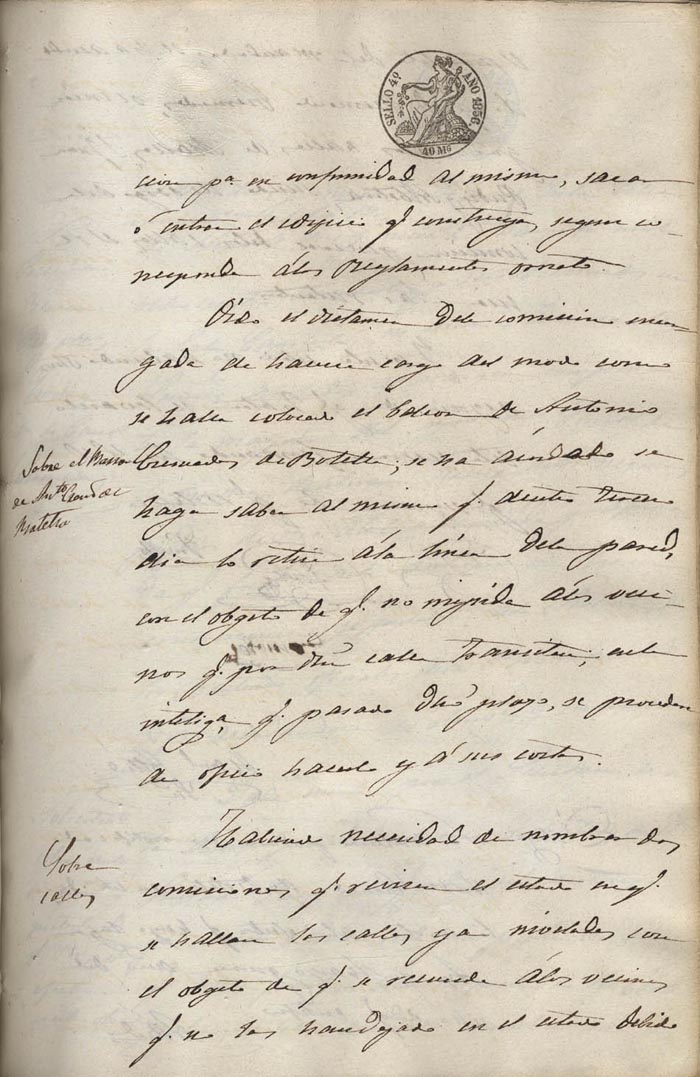 SELLO 4º AÑO 1856.
40 Ms
cion pª en conformidad al mismo, sacar
ó entrar el edificio q. construya, segun co-
rresponda á los Reglamentos ornato.
Oido el dictamen dela comision encar-
gada de hacerse cargo del modo como
se halla colocado el balcon de Antonio
Cremades de Botella; se ha acordado se
haga saber al mismo q. dentro tercero
dia lo retire á la línea dela pared,
con el obgeto de q. no impida á los veci-
nos q. por dha calle transiten; en la
inteliga, q. pasado dho plazo, se procederá
de oficio hacerlo y á sus costas.
Sobre el
de Antº Cremds de
Botella
Habiendo necesidad de nombrar dos
comisiones q. revisen el estado en q.
se hallan las calles, ya niveladas con
el obgeto de q. se recuerde á los vecinos
q. no las han dejado en el estado debido
Sobre
calles